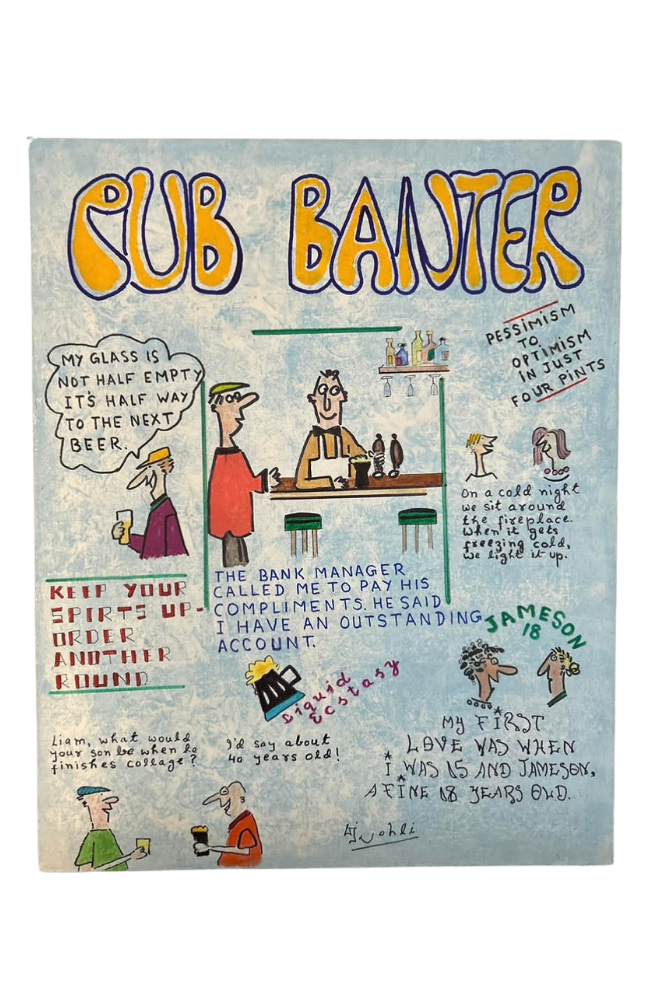 PUB BANTER
PESSIMISM
TO
OPTIMISM
IN JUST
FOUR PINTS
MY GLASS IS
NOT HALF EMPTY
IT'S HALF WAY
TO THE NEXT
BEER.
On a cold night
we sit around
the fireplace.
When it gets
freezing cold,
we light it up.
KEEP YOUR
SPIRTS UP-
ORDER
ANOTHER
ROUND
THE BANK MANAGER
CALLED ME TO PAY HIS
COMPLIMENTS. HE SAID
I HAVE AN OUTSTANDING
ACCOUNT.
JAMESON
18
Liquid
Ecstasy
MY FIRST
LOVE WAS WHEN
I WAS 15 AND JAMESON,
A FINE 18 YEARS OLD.
Liam, what would
your son be when he
finishes collage?
I'd say about
40 years old!